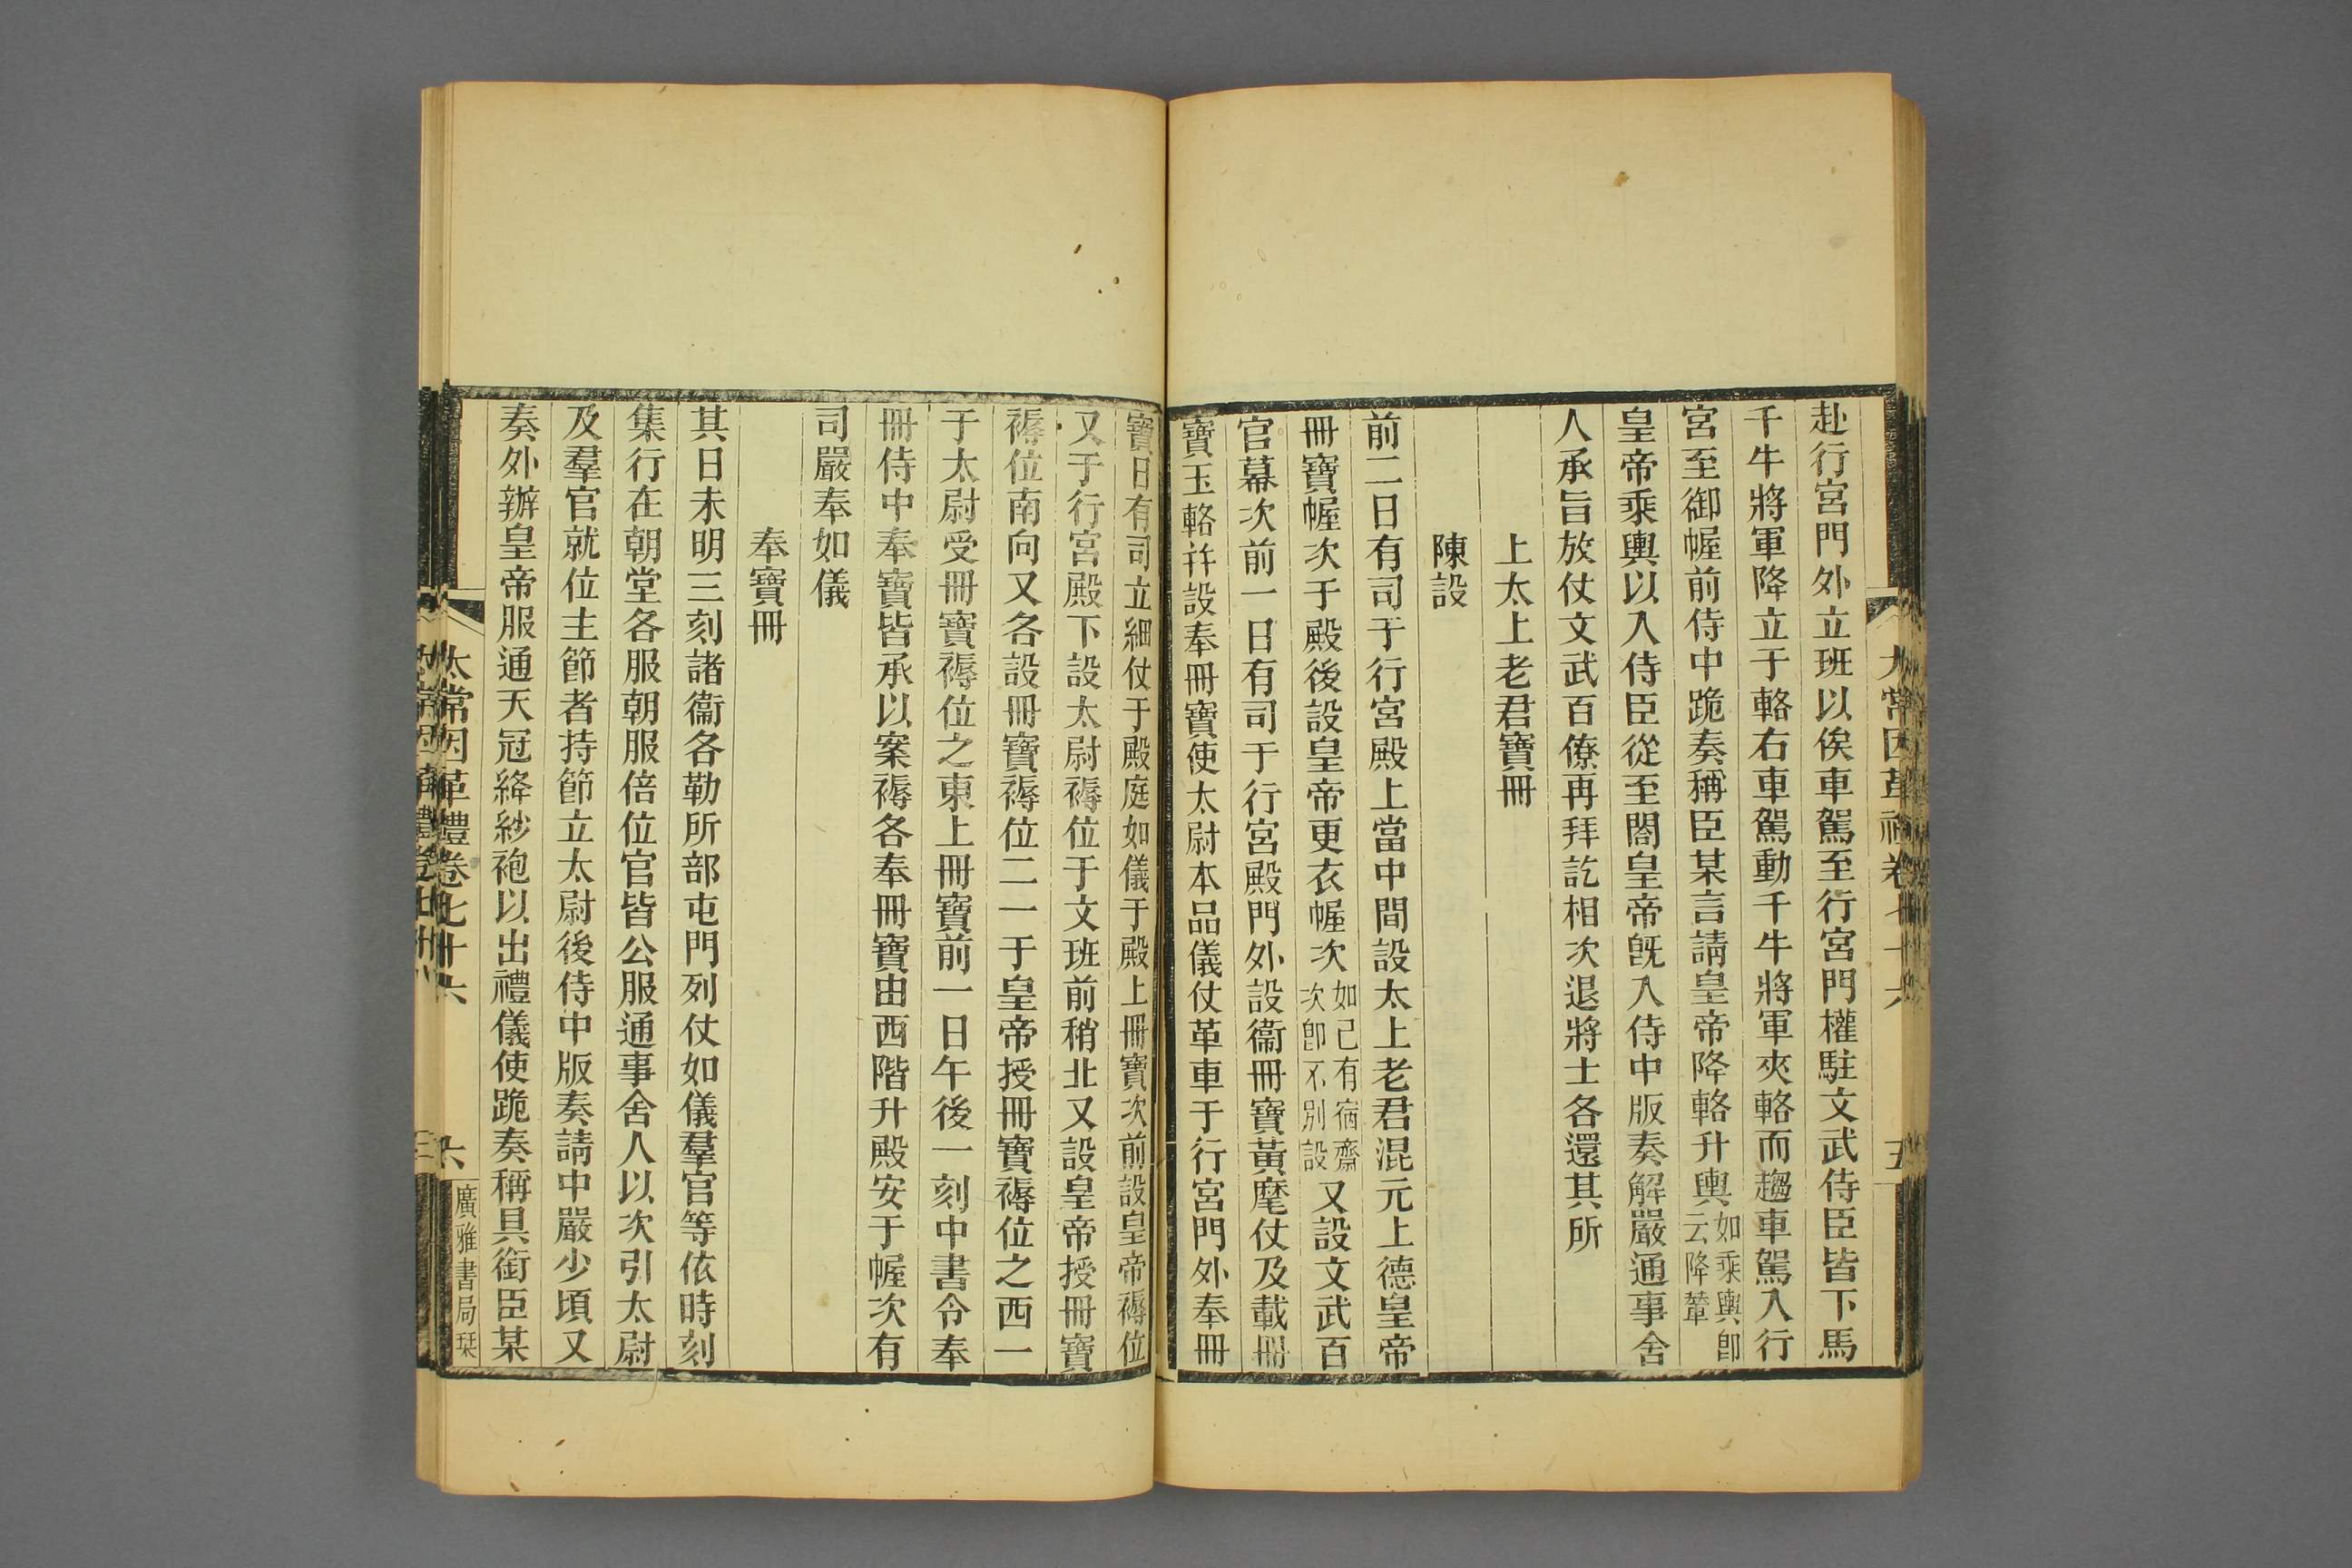 赴行宮門外立班以俟車駕至行宮門權駐文武侍臣皆下馬
千牛將軍降立于輅右車駕動千牛將軍夾輅而趨車駕入行
宮至御幄前侍中跪奏稱臣某言請皇帝降輅升輿如乘輿卽云降輦
皇帝乘輿以入侍臣從至閤皇帝旣入侍中版奏解嚴通事舍
人承旨放仗文武百僚再拜訖相次退將士各還其所
上太上老君寶冊
陳設
前二日有司于行宮殿上當中間設太上老君混元上德皇帝
冊寶幄次于殿後設皇帝更衣幄次如已有宿齋次卽不別設又設文武百
官幕次前一日有司于行宮殿門外設衞冊寶黃麾仗及載冊
寶玉輅幷設奉冊寶使太尉本品儀仗革車于行宮門外奉冊
寶日有司立細仗于殿庭如儀于殿上冊寶次前設皇帝褥位
又于行宮殿下設太尉褥位于文班前稍北又設皇帝授冊寶
褥位南向又各設冊寶褥位二一于皇帝授冊寶褥位之西一
于太尉受冊寶褥位之東上冊寶前一日午後一刻中書令奉
冊侍中奉寶皆承以案褥各奉冊寶由西階升殿安于幄次有
司嚴奉如儀
奉寶冊
其日未明三刻諸衞各勒所部屯門列仗如儀羣官等依時刻
集行在朝堂各服朝服倍位官皆公服通事舍人以次引太尉
及羣官就位主節者持節立太尉後侍中版奏請中嚴少頃又
奏外辦皇帝服通天冠絳紗袍以出禮儀使跪奏稱具銜臣某
太常因革禮卷七十六
六
廣雅書局栞